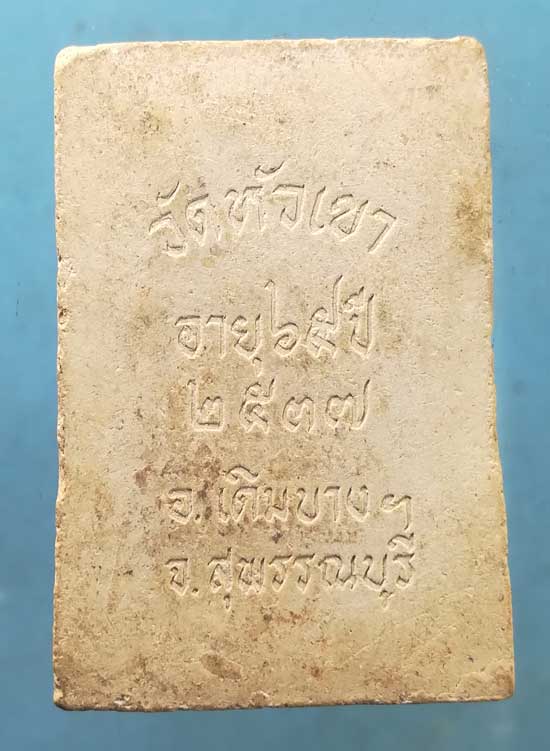 วัดหัวเขา
อายุ๖๙ปี
๒๕๓๗
อ.เดิมบางฯ
จ.สุพรรณบุรี